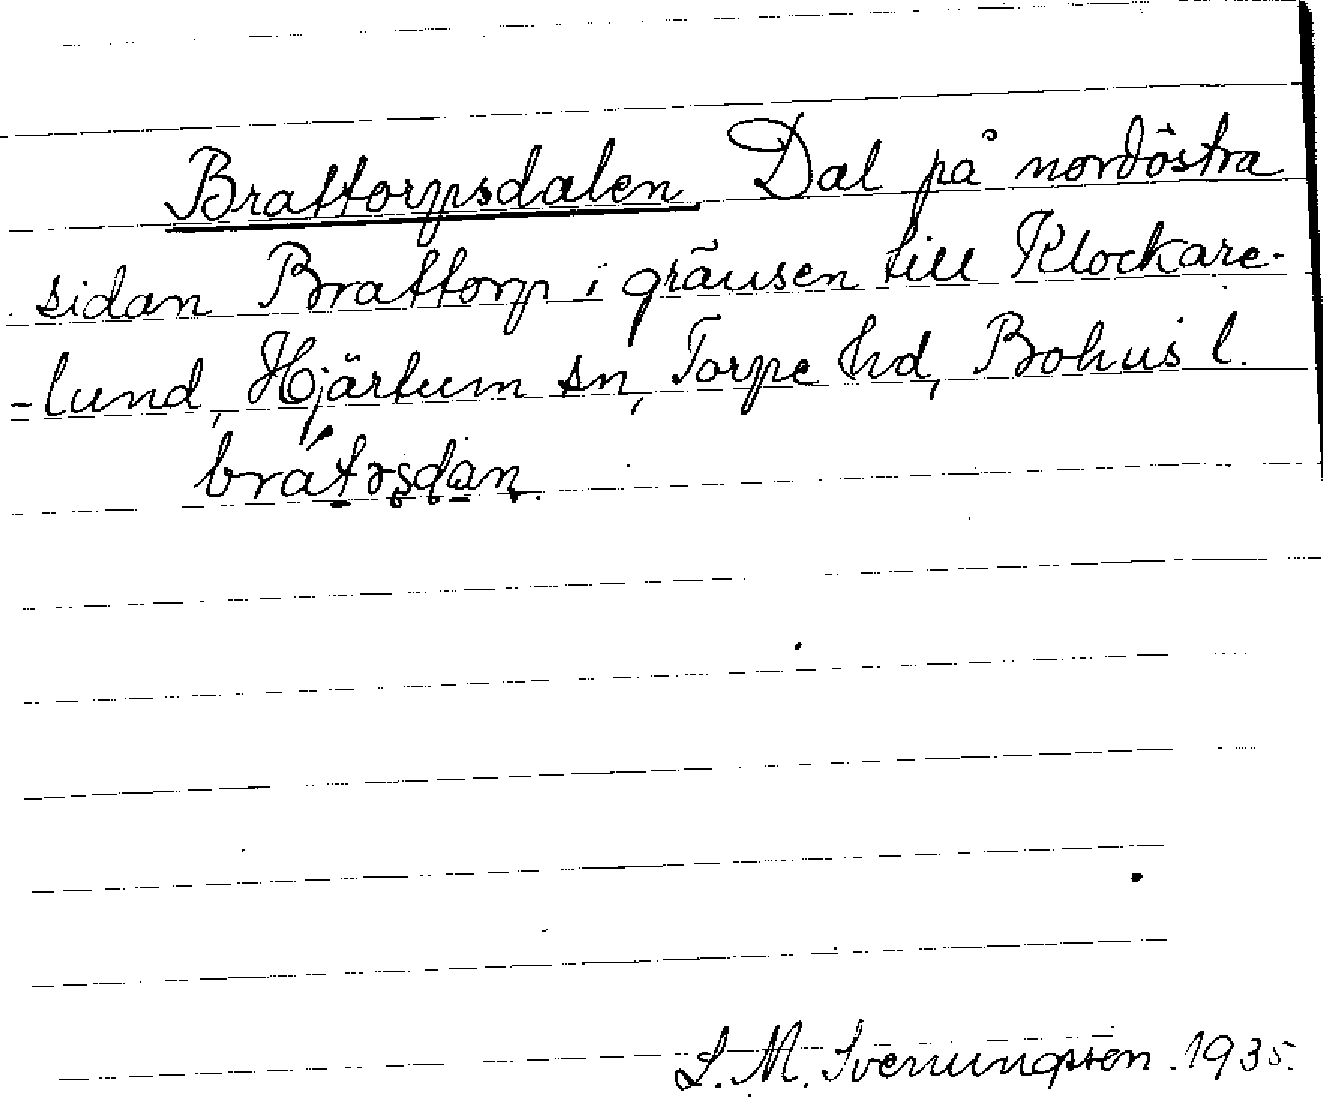 Brattorpsdalen Dal på nordöstra
sidan Brattorp i gränsen till Klockare-
-lund, Hjärtum sn, Torpe hd, Bohus l.
brátərsdan.
L. M. Svenungsson. 1935.